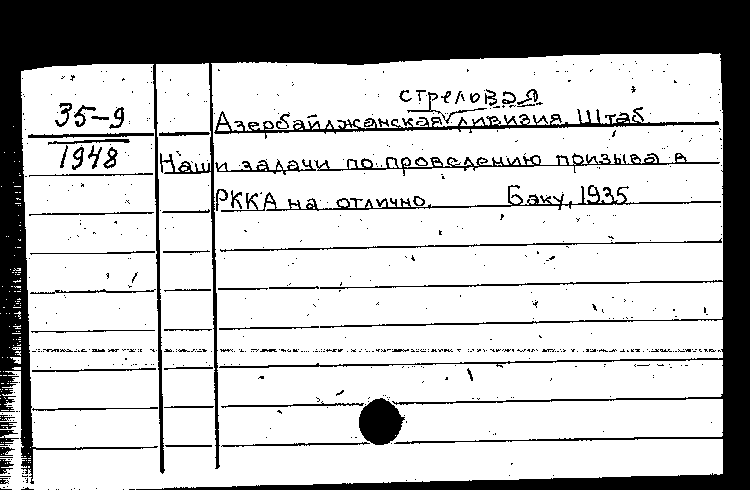 стреловая
35-9
Азербайджанская дивизия. Штаб
1948
Наши задачи по проведению призыва в
РККА на отлично. Баку, 1935